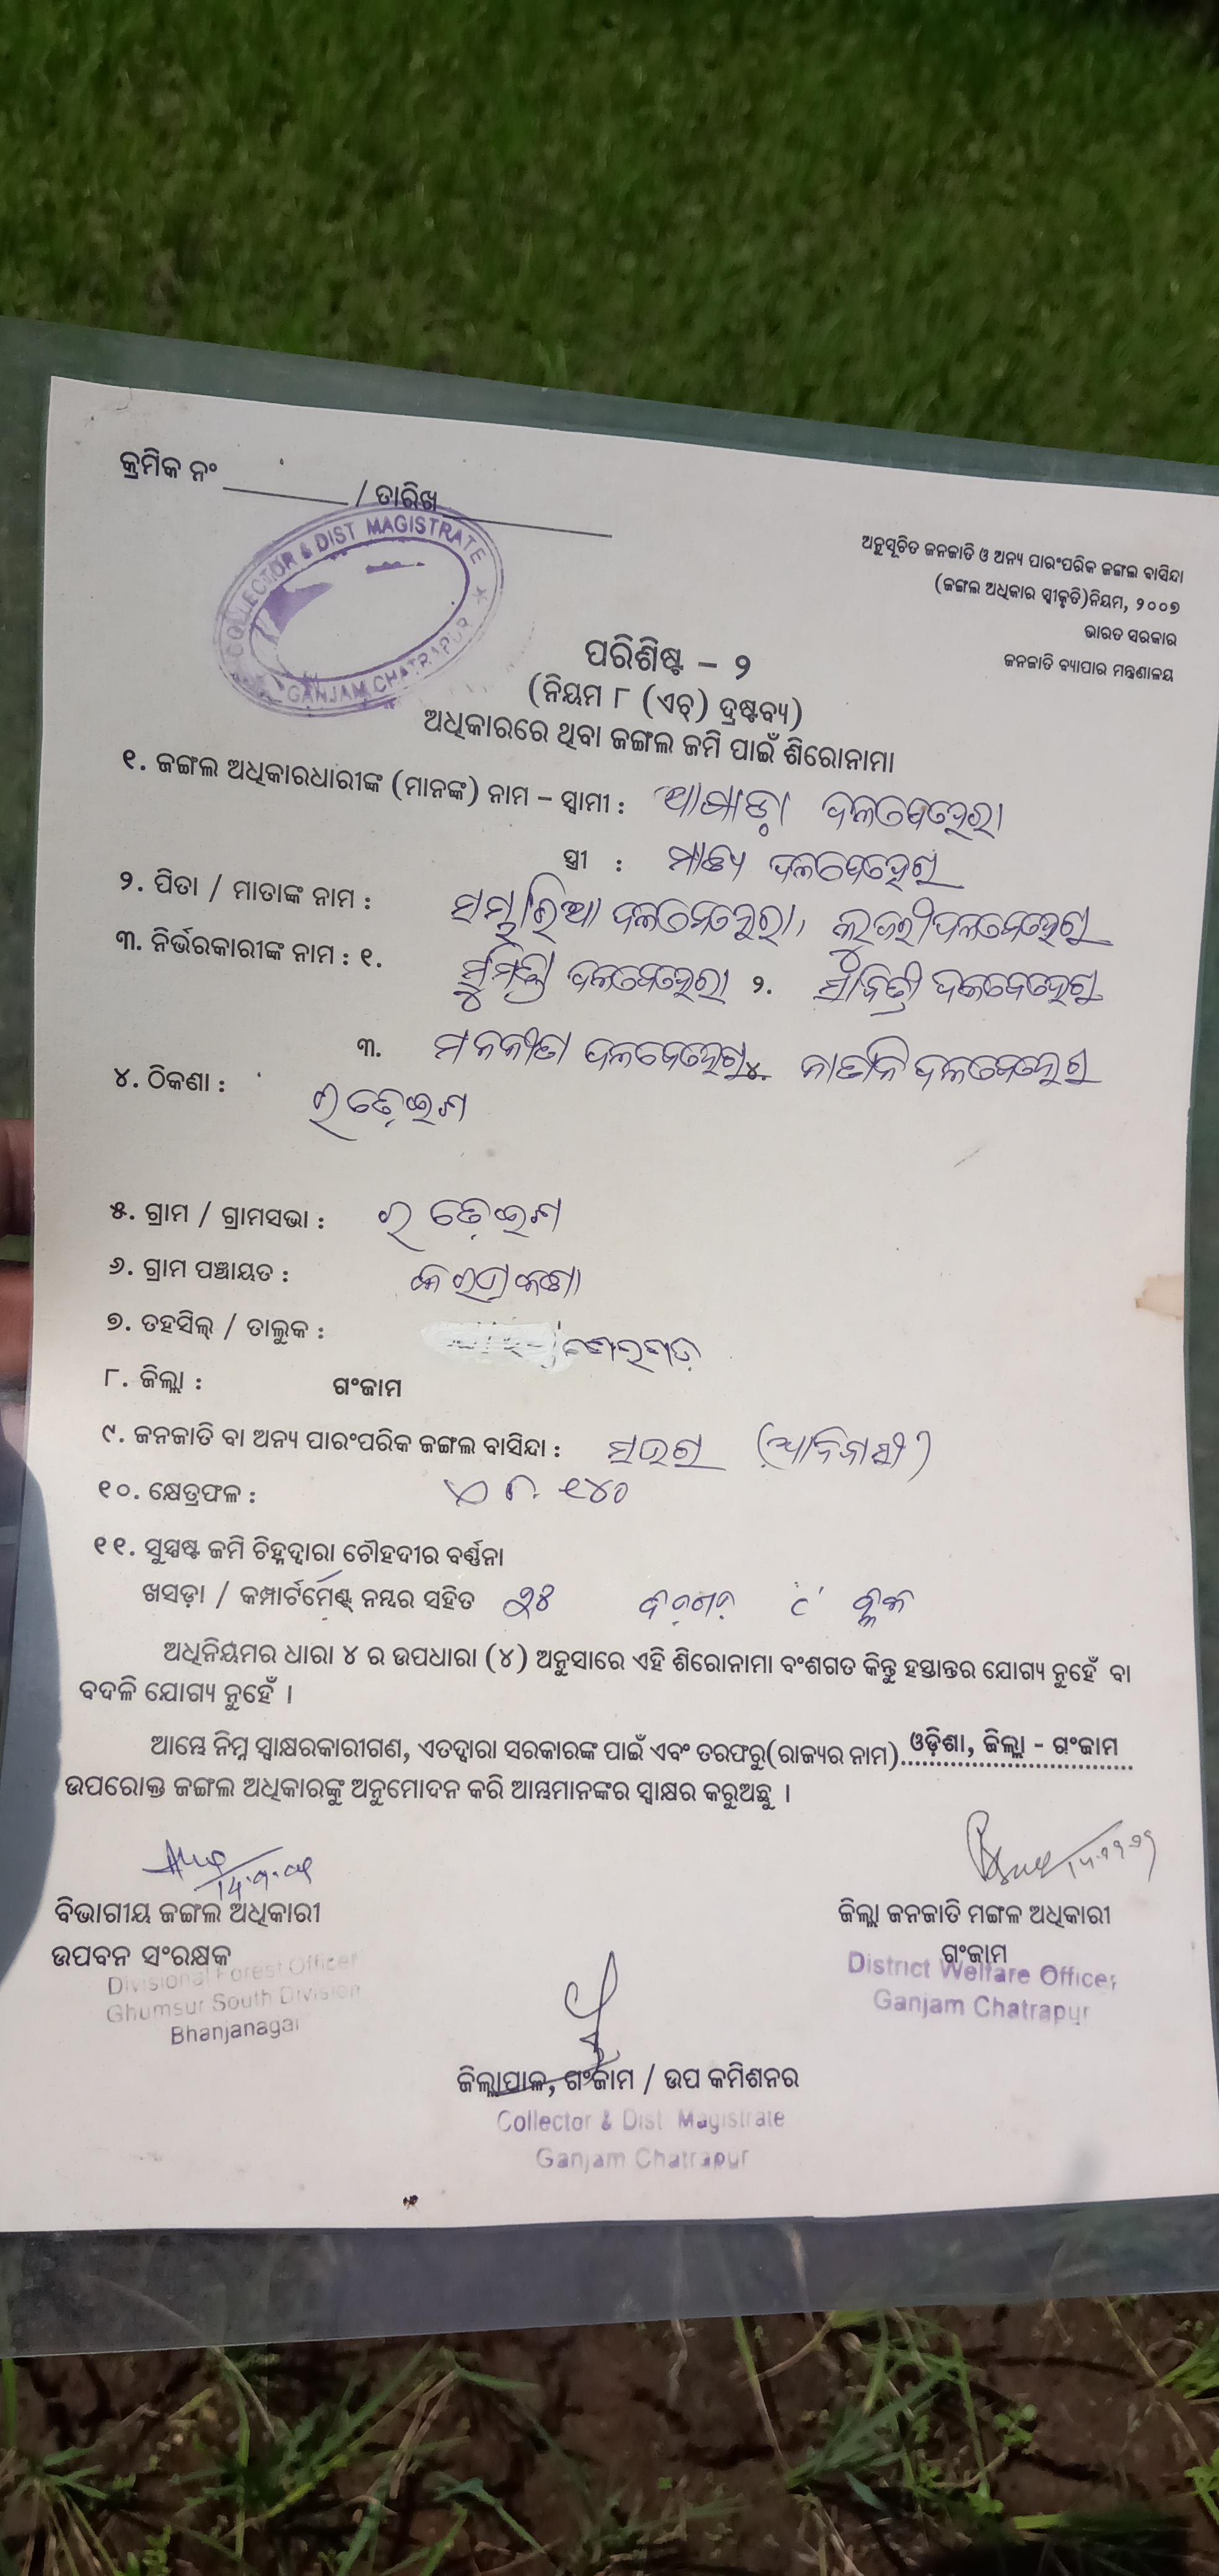 କ୍ରମିକ ନଂ ________ / ତାରିଖ ____________
COLLECTOR & DIST MAGISTRATE
GANJAM CHATRAPUR
ଅନୁସୂଚିତ ଜନଜାତି ଓ ଅନ୍ୟ ପାରଂପରିକ ଜଙ୍ଗଲ ବାସିନ୍ଦା
(ଜଙ୍ଗଲ ଅଧିକାର ସ୍ୱୀକୃତି)ନିୟମ, ୨୦୦୭
ଭାରତ ସରକାର
ଜନଜାତି ବ୍ୟାପାର ମନ୍ତ୍ରଣାଳୟ
ପରିଶିଷ୍ଟ – ୨
(ନିୟମ ୮ (ଏଚ୍) ଦ୍ରଷ୍ଟବ୍ୟ)
ଅଧିକାରରେ ଥିବା ଜଙ୍ଗଲ ଜମି ପାଇଁ ଶିରୋନାମା
୧. ଜଙ୍ଗଲ ଅଧିକାରଧାରୀଙ୍କ (ମାନଙ୍କ) ନାମ – ସ୍ୱାମୀ : ଦଳବେହେରା
ସ୍ତ୍ରୀ : ଦଳବେହେରା
୨. ପିତା / ମାତାଙ୍କ ନାମ : ଦଳବେହେରା, ଦଳବେହେରା
୩. ନିର୍ଭରକାରୀଙ୍କ ନାମ : ୧. ଦଳବେହେରା ୨. ସାବିତ୍ରୀ ଦଳବେହେରା
୩. ଦଳବେହେରା ୪. ଦଳବେହେରା
୪. ଠିକଣା :
୫. ଗ୍ରାମ / ଗ୍ରାମସଭା :
୬. ଗ୍ରାମ ପଞ୍ଚାୟତ :
୭. ତହସିଲ୍ / ତାଲୁକ :
୮. ଜିଲ୍ଲା : ଗଂଜାମ
୯. ଜନଜାତି ବା ଅନ୍ୟ ପାରଂପରିକ ଜଙ୍ଗଲ ବାସିନ୍ଦା : ସଉରା (ଆଦିବାସୀ)
୧୦. କ୍ଷେତ୍ରଫଳ : ୧୪୦
୧୧. ସୁସ୍ପଷ୍ଟ ଜମି ଚିହ୍ନଦ୍ୱାରା ଚୌହଦୀର ବର୍ଣ୍ଣନା
ଖସଡ଼ା / କମ୍ପାର୍ଟମେଣ୍ଟ ନମ୍ବର ସହିତ
ଅଧିନିୟମର ଧାରା ୪ ର ଉପଧାରା (୪) ଅନୁସାରେ ଏହି ଶିରୋନାମା ବଂଶଗତ କିନ୍ତୁ ହସ୍ତାନ୍ତର ଯୋଗ୍ୟ ନୁହେଁ ବା
ବଦଳି ଯୋଗ୍ୟ ନୁହେଁ ।
ଆମ୍ଭେ ନିମ୍ନ ସ୍ୱାକ୍ଷରକାରୀଗଣ, ଏତଦ୍ୱାରା ସରକାରଙ୍କ ପାଇଁ ଏବଂ ତରଫରୁ(ରାଜ୍ୟର ନାମ) ଓଡ଼ିଶା, ଜିଲ୍ଲା - ଗଂଜାମ
ଉପରୋକ୍ତ ଜଙ୍ଗଲ ଅଧିକାରଙ୍କୁ ଅନୁମୋଦନ କରି ଆମ୍ଭମାନଙ୍କର ସ୍ୱାକ୍ଷର କରୁଅଛୁ ।
ବିଭାଗୀୟ ଜଙ୍ଗଲ ଅଧିକାରୀ
ଉପବନ ସଂରକ୍ଷକ
Divisional Forest Officer
Ghumsur South Division
Bhanjanagar
ଜିଲ୍ଲା ଜନଜାତି ମଙ୍ଗଳ ଅଧିକାରୀ
ଗଂଜାମ
District Welfare Officer
Ganjam Chatrapur
ଜିଲ୍ଲାପାଳ, ଗଂଜାମ / ଉପ କମିଶନର
Collector & Dist Magistrate
Ganjam Chatrapur